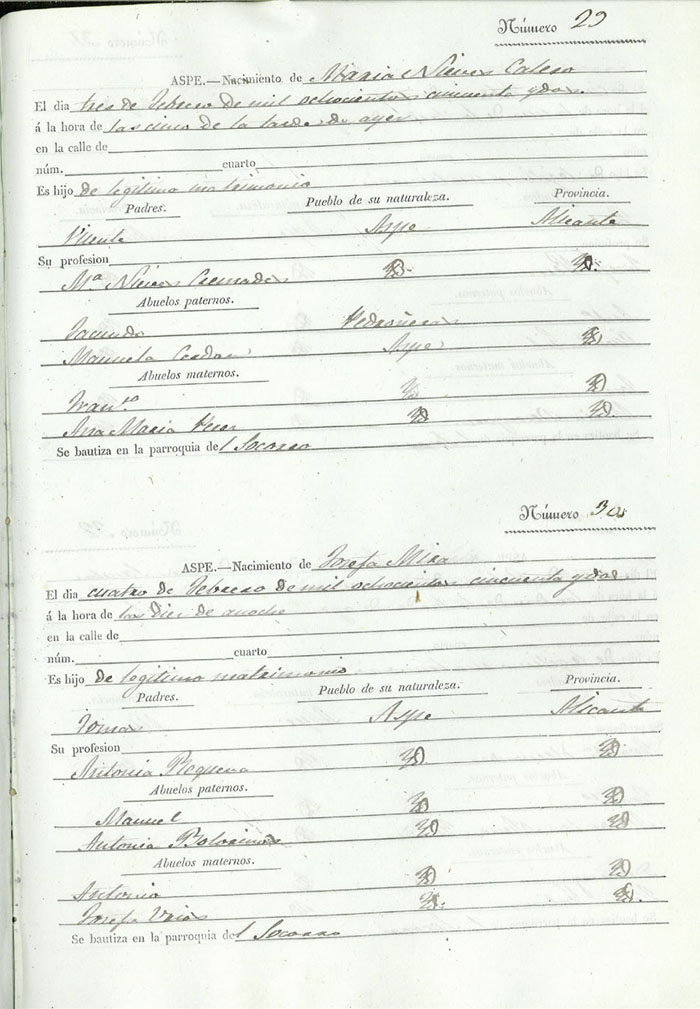 Número 29
ASPE.—Nacimiento de Maria Nieves Calero
El dia tres de Febrero de mil ochocientos cincuenta y dos.
á la hora de las cinco de la tarde de ayer
en la calle de
núm. cuarto
Es hijo de legitimo matrimonio
Padres. Pueblo de su naturaleza. Provincia.
Vicente Aspe Alicante
Su profesion
Mª Nieves Cremades
Abuelos paternos.
Jacundo
Manuela Cerdan Aspe
Abuelos maternos.
Franco
Ana Maria
Se bautiza en la parroquia del Socorro
Número 30
ASPE.—Nacimiento de Josefa Mira
El dia cuatro de Febrero de mil ochocientos cincuenta y dos
á la hora de las diez de anoche
en la calle de
núm. cuarto
Es hijo de legitimo matrimonio
Padres. Pueblo de su naturaleza. Provincia.
Tomas Aspe Alicante
Su profesion
Antonia Requena
Abuelos paternos.
Manuel
Antonia
Abuelos maternos.
Antonio
Josefa
Se bautiza en la parroquia del Socorro